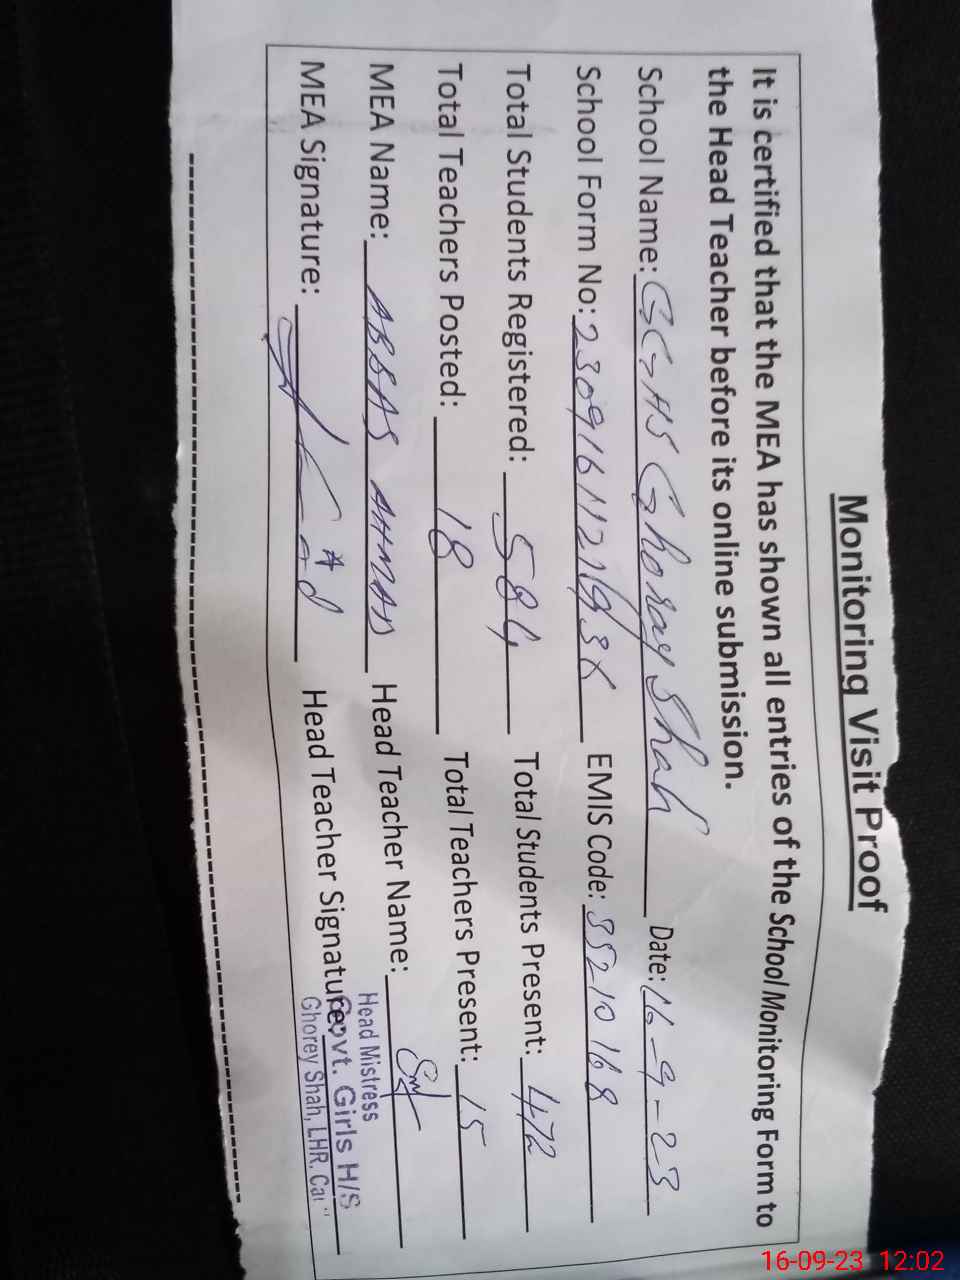 Monitoring Visit Proof
It is certified that the MEA has shown all entries of the School Monitoring Form to
the Head Teacher before its online submission.
School Name: GGHS Ghoray Shah Date: 16-9-23
School Form No: EMIS Code: 35210168
Total Students Registered: 584 Total Students Present: 472
Total Teachers Posted: 18 Total Teachers Present: 15
MEA Name: ABBAS AHMAD Head Teacher Name:
MEA Signature: Head Teacher Signature:
Head Mistress
Govt. Girls H/S
Ghorey Shah, LHR.
16-09-23 12:02